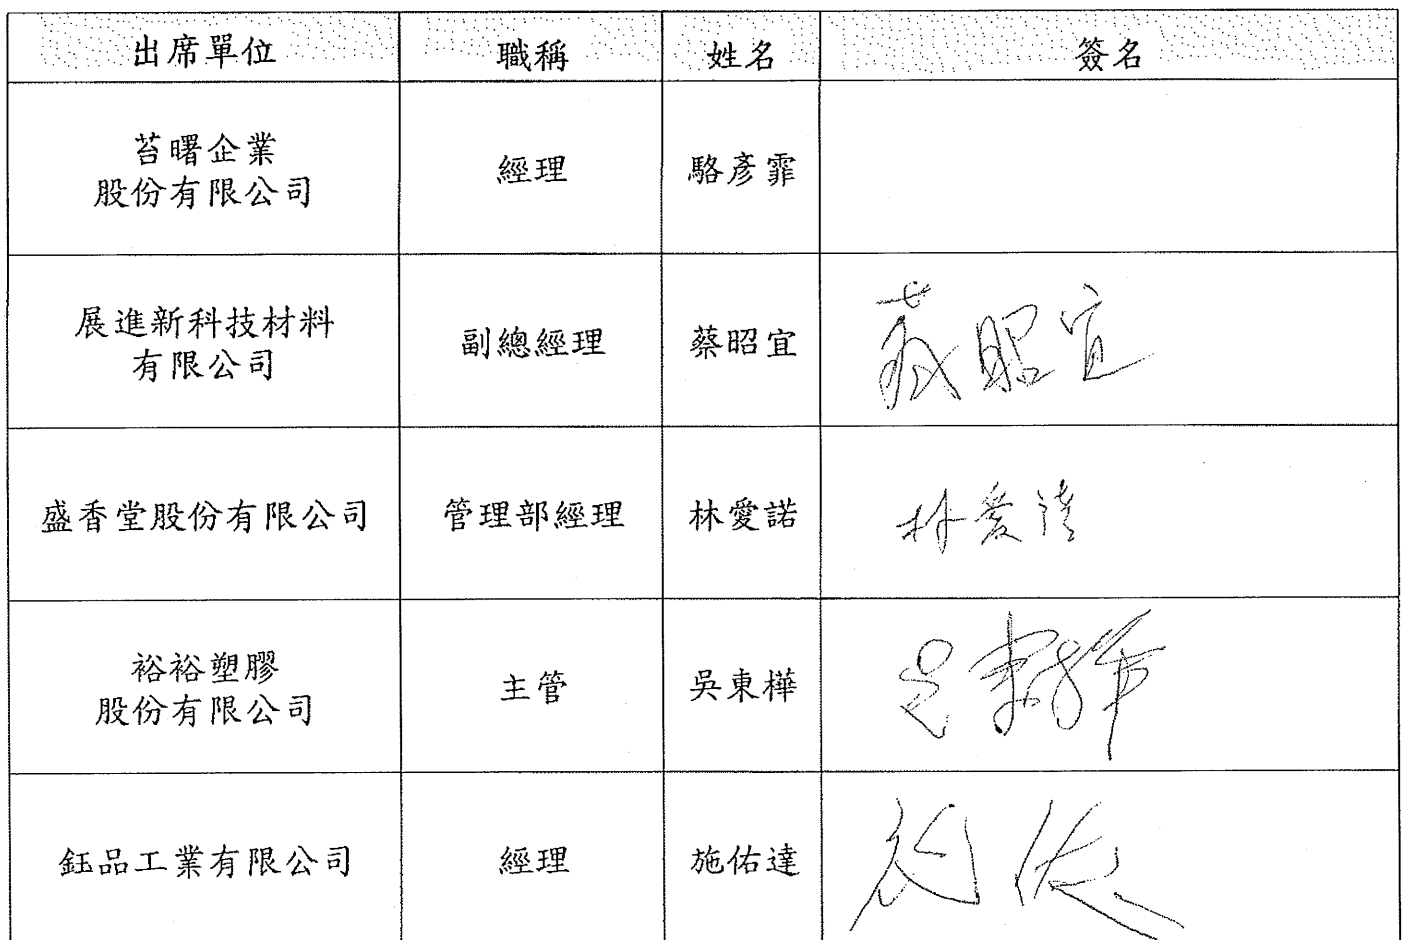 出席單位 職稱 姓名 簽名
苔曙企業
股份有限公司 經理 駱彥霏
展進新科技材料
有限公司 副總經理 蔡昭宜 蔡昭宜
盛香堂股份有限公司 管理部經理 林愛諾 林愛諾
裕裕塑膠
股份有限公司 主管 吳東樺 吳東樺
鈺品工業有限公司 經理 施佑達